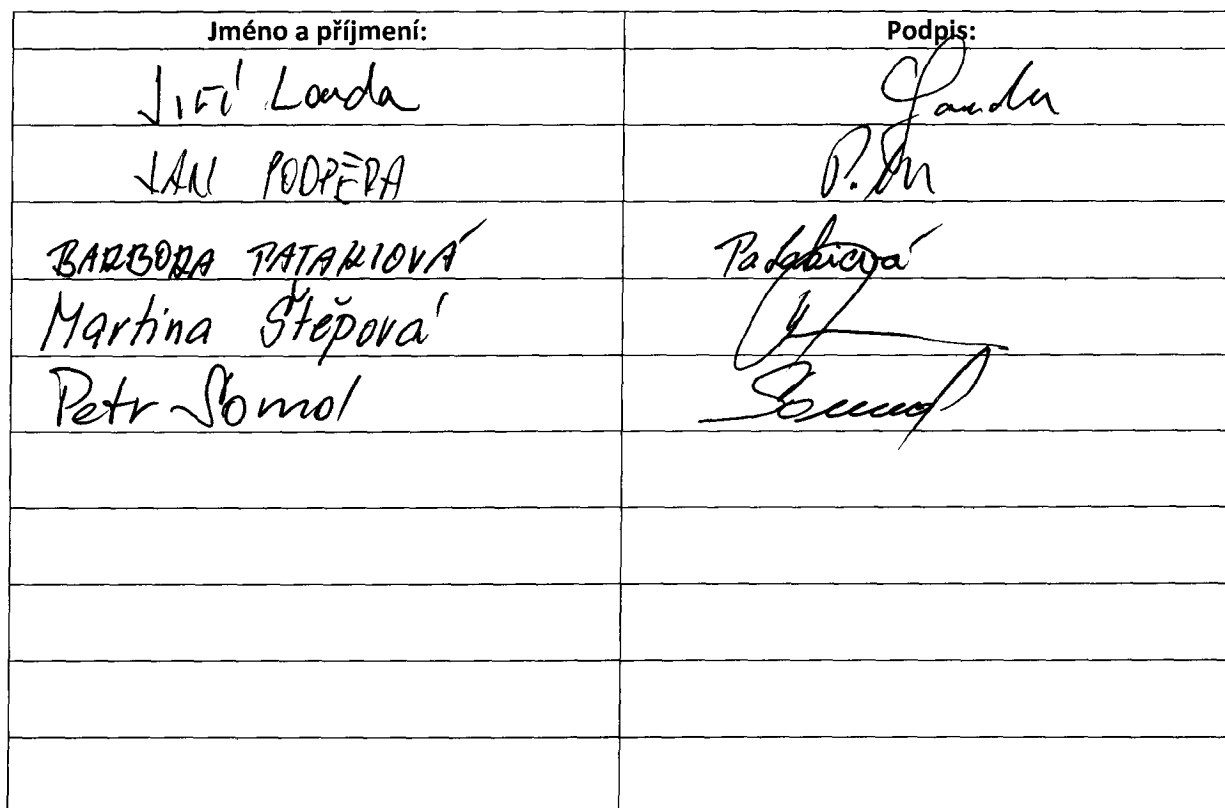 Jméno a příjmení: Podpis:
Jiří Louda
JAN PODPĚRA
BARBORA PATAKIOVÁ Patakiová
Martina Štěpová
Petr Somol Somol